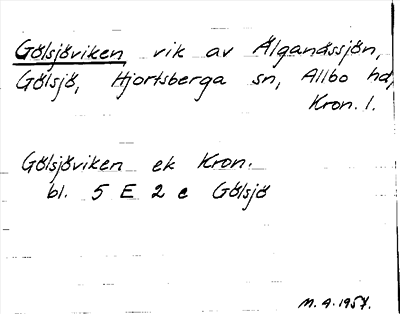 Gölsjöviken vik av Älganässjön,
Gölsjö, Hjortsberga sn, Allbo hd,
Kron. l.
Gölsjöviken ek Kron.
bl. 5 E 2 c Gölsjö
M. A. 1957.